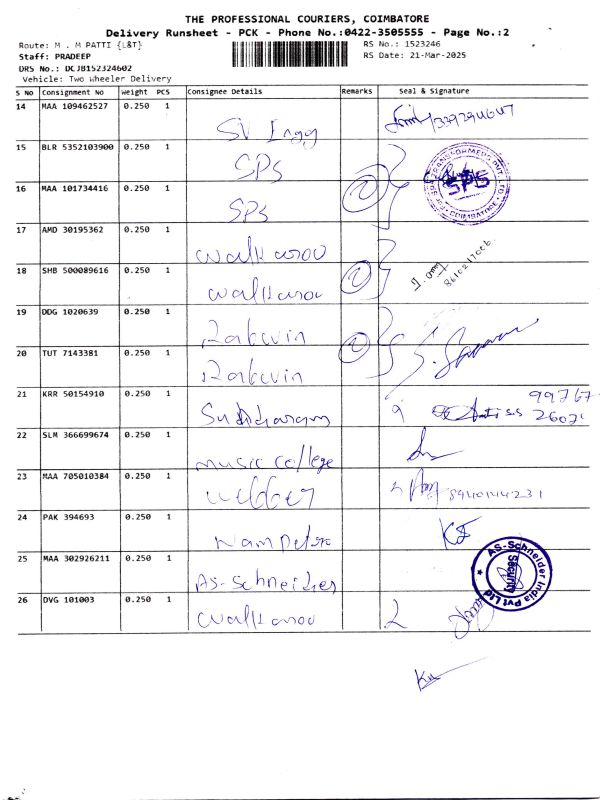 THE PROFESSIONAL COURIERS, COIMBATORE
Delivery Runsheet - PCK - Phone No.:0422-3505555 - Page No.:2
Route: M . M PATTI {L&T}
RS No.: 1523246
Staff: PRADEEP
RS Date: 21-Mar-2025
DRS No.: DCJB152324602
Vehicle: Two Wheeler Delivery
S NO Consignment No Weight PCS Consignee Details Remarks Seal & Signature
14 MAA 109462527 0.250 1 SV Engg
15 BLR 5352103900 0.250 1 SPS
SPS
COIMBATORE
16 MAA 101734416 0.250 1 SPS
2
17 AMD 30195362 0.250 1 Walkaroo
18 SHB 500089616 0.250 1 Walkaroo
2
8610217006
19 DDG 1020639 0.250 1
20 TUT 7143381 0.250 1
2
21 KRR 50154910 0.250 1
99767
22 SLM 366699674 0.250 1 music college
23 MAA 705010384 0.250 1
8940144231
24 PAK 394693 0.250 1
25 MAA 302926211 0.250 1 AS-Schneider
AS-Schneider India Pvt Ltd
Security
26 DVG 101003 0.250 1 Walkaroo